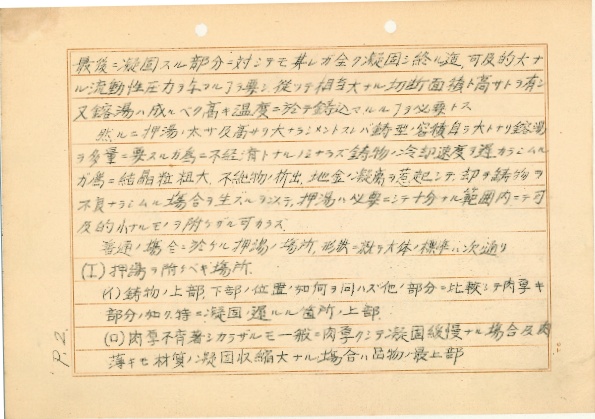 最後ニ凝固スル部分ニ対シテモ其レガ全ク凝固シ終ル迄可及的大ナ
ル流動性圧力ヲ与フル丁ヲ要シ従ツテ相当大ナル切断面積ト高サトヲ有シ
又鎔湯ハ成ルベク高キ温度ニ於テ鋳込マルル丁ヲ必要トス
然ルニ押湯ノ太サ及高サヲ大ナラシメントスレバ鋳型ノ容積自ラ大トナリ鎔湯
ヲ多量ニ要スルガ為ニ不経済トナルノミナラズ鋳物ノ冷却速度ヲ遅カラシムル
ガ為ニ結晶粒粗大、不純物ノ析出、地金ノ凝離ヲ惹起シテ却ツテ鋳物ヲ
不良ナラシムル場合ヲ生ズルヲ以テ押湯ハ必要ニシテ十分ナル範囲内ニテ可
及的小ナルモノヲ附セザル可カラズ
普通ノ場合ニ於ケル押湯ノ場所、形状ニ就テ大体ノ標準ハ次ノ通リ
(I) 押湯ヲ附スベキ場所
(イ) 鋳物ノ上部、下部ノ位置ノ如何ヲ問ハズ他ノ部分ニ比較シテ肉厚キ
部分ノ如ク特ニ凝固ノ遅ルル箇所ノ上部
(ロ) 肉厚不斉著シカラザルモ一般ニ肉厚クシテ凝固緩慢ナル場合及肉
薄キモ材質ノ凝固収縮大ナル場合ハ品物ノ最上部
P.2.